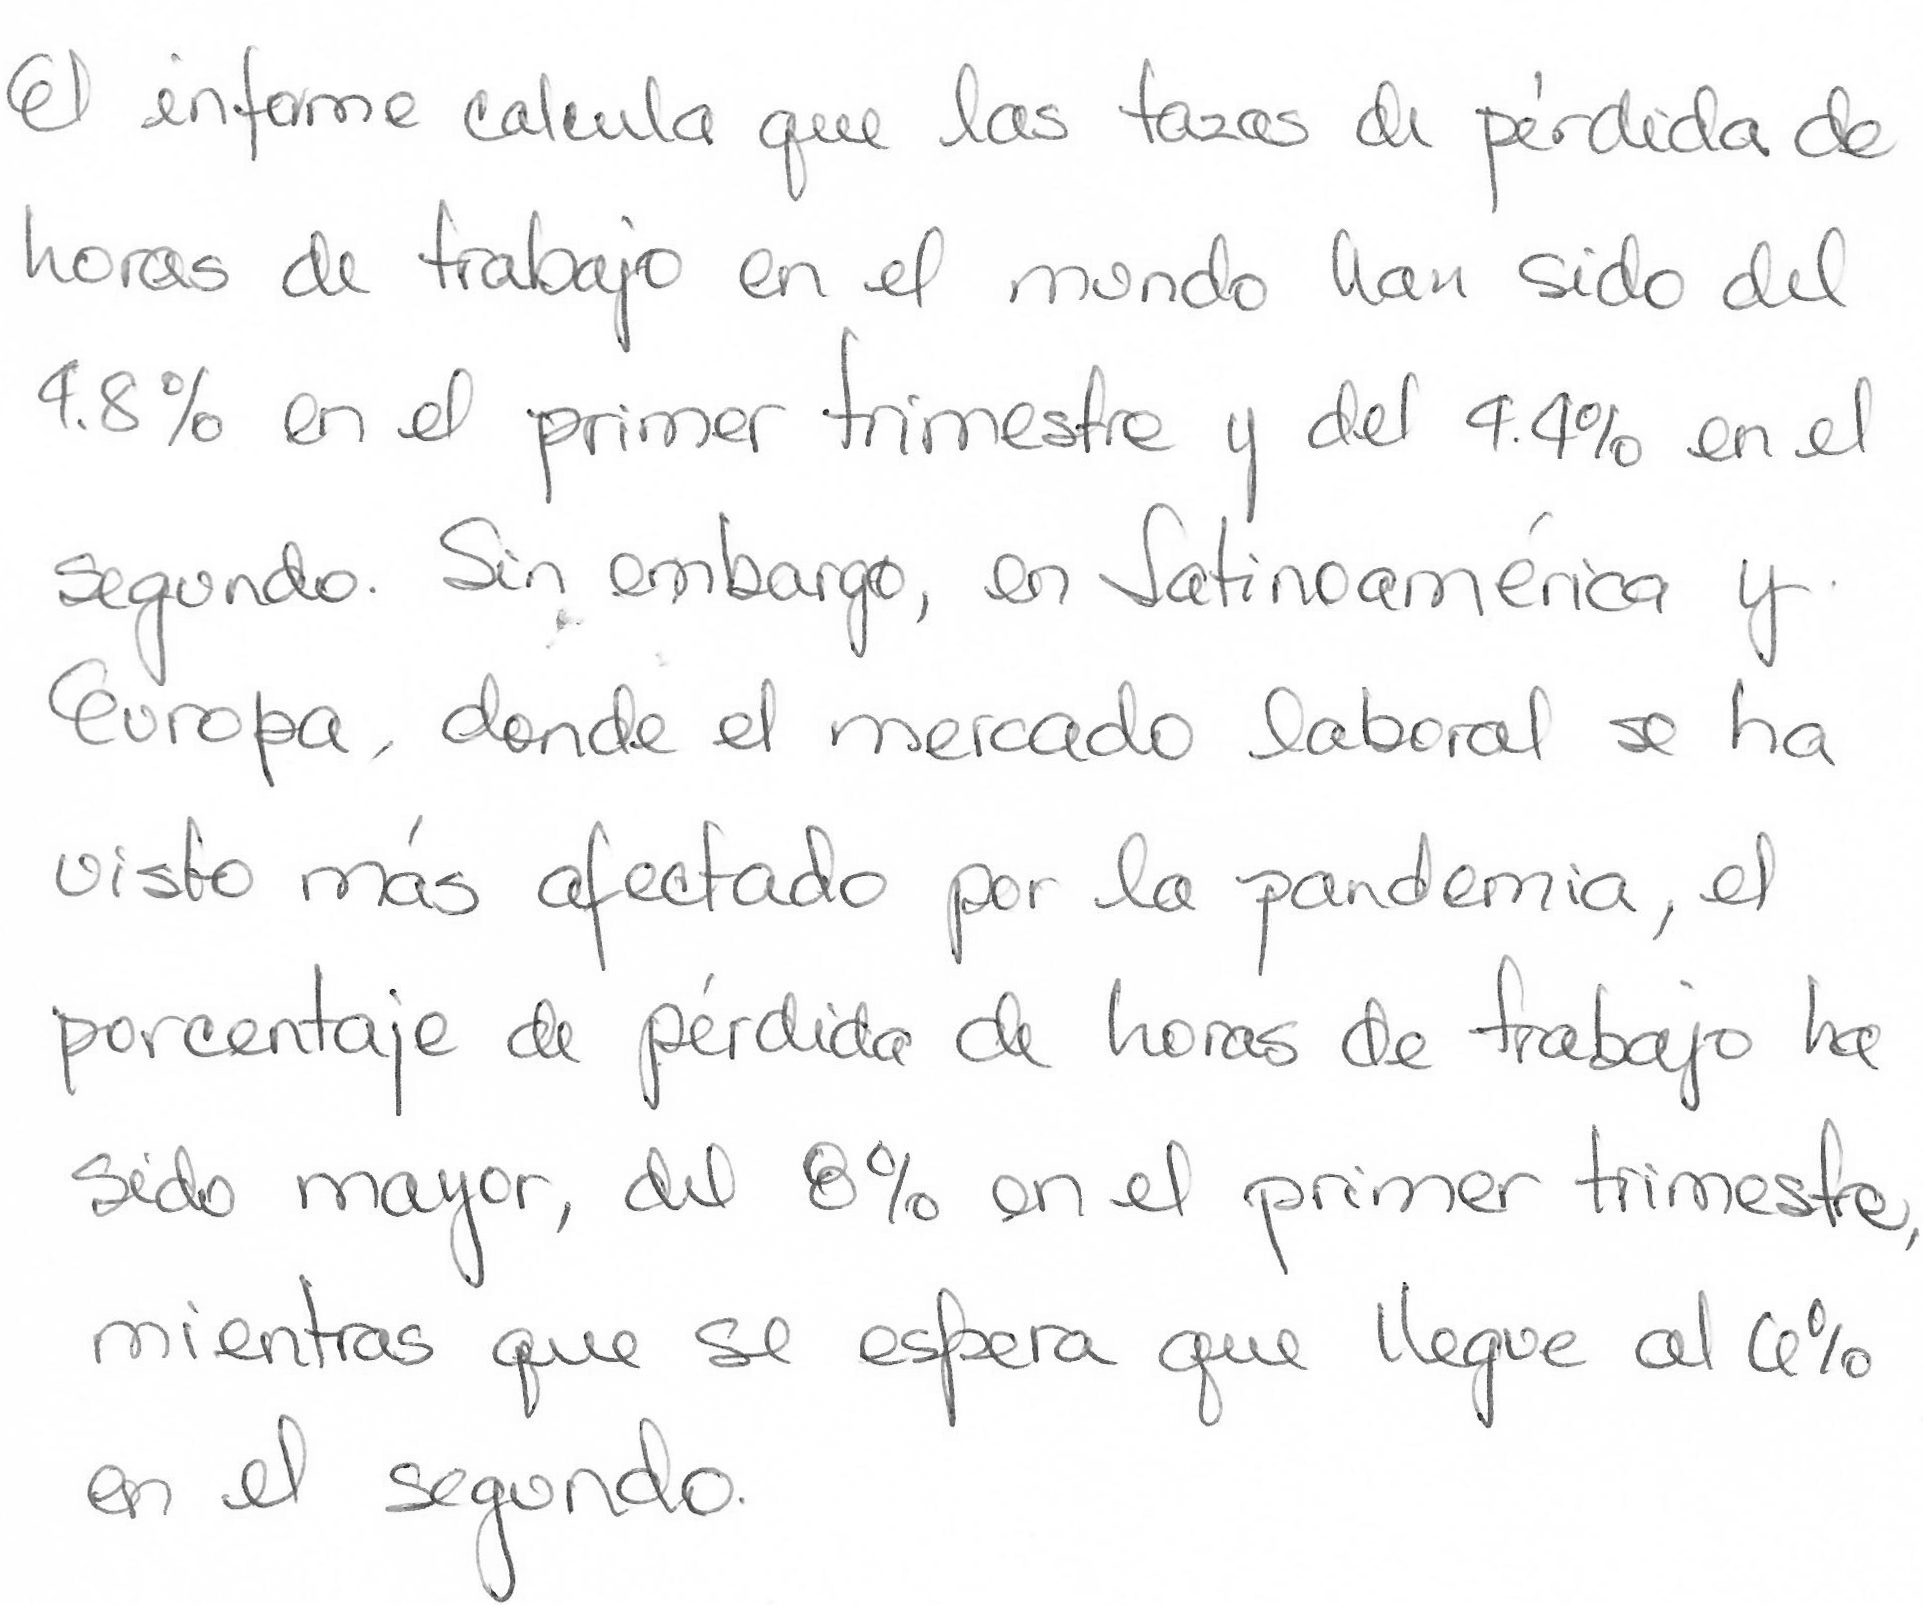 El informe calcula que las tazas de pérdida de
horas de trabajo en el mundo han sido del
4.8% en el primer trimestre y del 4.4% en el
segundo. Sin embargo, en Latinoamérica y
Europa, donde el mercado laboral se ha
visto más afectado por la pandemia, el
porcentaje de pérdida de horas de trabajo ha
sido mayor, del 8% en el primer trimestre,
mientras que se espera que llegue al 6%
en el segundo.